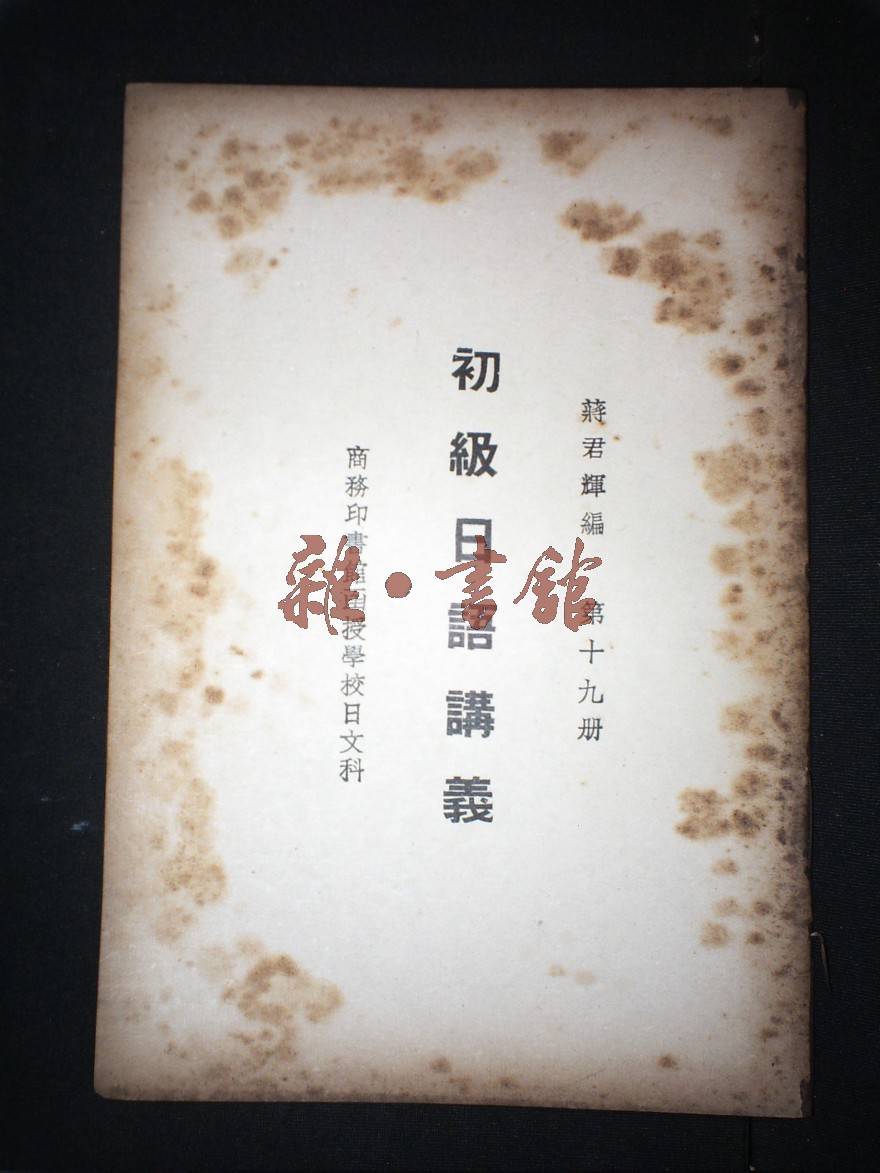 蔣君輝編 第十九册
初級日語講義
商務印書館函授學校日文科
雜·書館